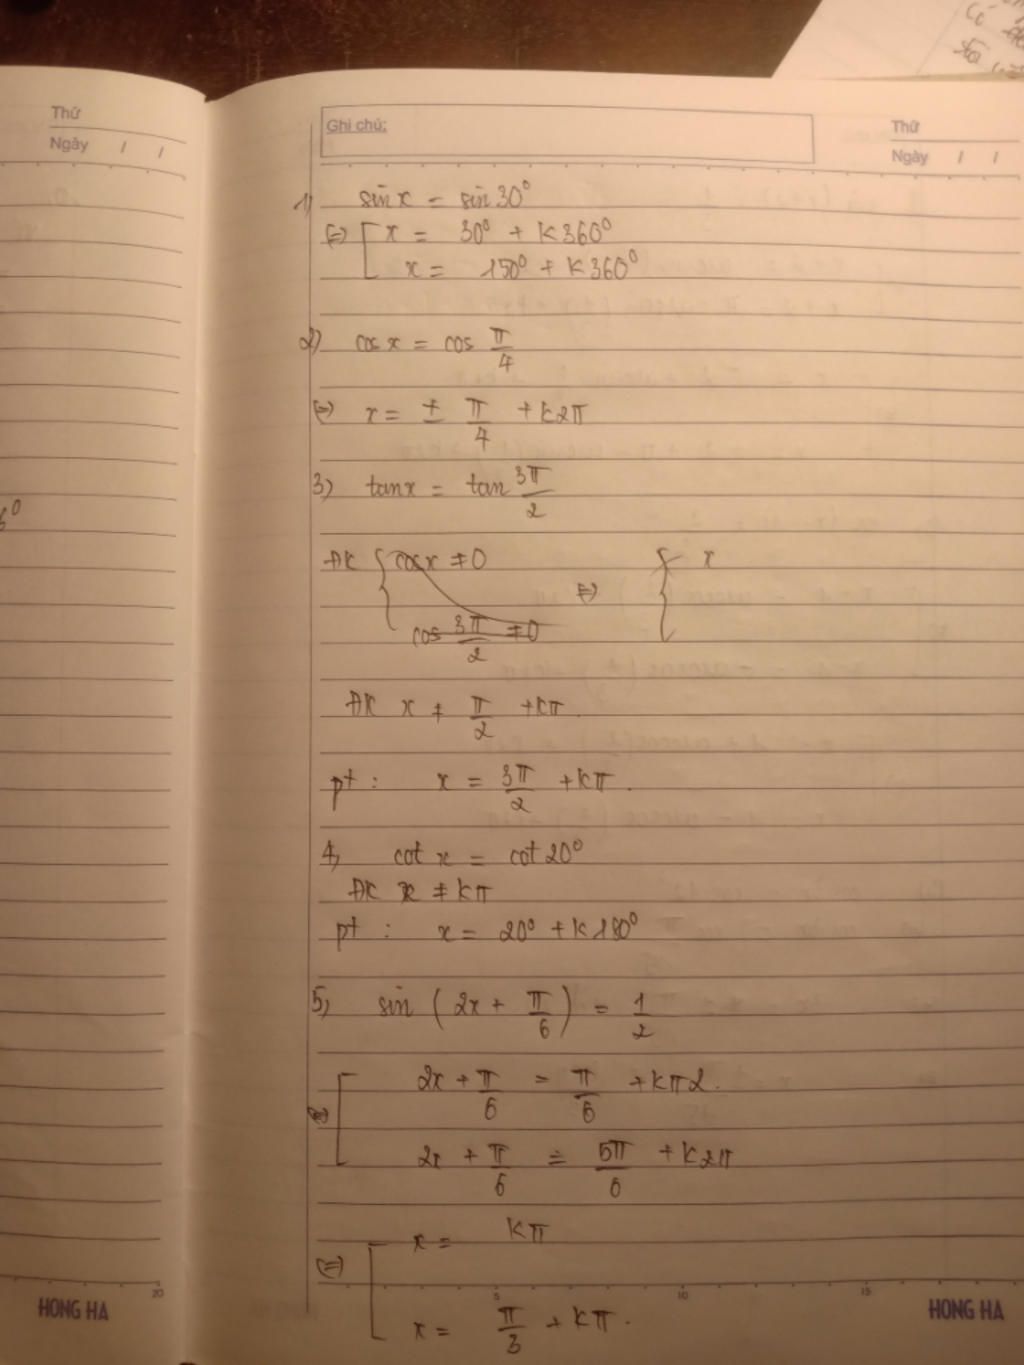 Thứ
Ngày / /
Ghi chú:
Thứ
Ngày / /
1) sin x = sin 30°
⇔ [ x = 30° + K360°
x = 150° + K360°
2) cos x = cos π/4
⇔ x = ± π/4 + k2π
3) tan x = tan 3π/2
ĐK { cos x ≠ 0 ⇔ { x
cos 3π/2 ≠ 0
ĐK x ≠ π/2 + kπ
pt : x = 3π/2 + kπ.
4, cot x = cot 20°
ĐK x ≠ kπ
pt : x = 20° + K180°
5, sin ( 2x + π/6 ) = 1/2
⇔ [ 2x + π/6 = π/6 + kπ2.
2x + π/6 = 5π/6 + k2π
⇔ [ x = kπ
x = π/3 + kπ.
20
HONG HA
5 10 15
HONG HA